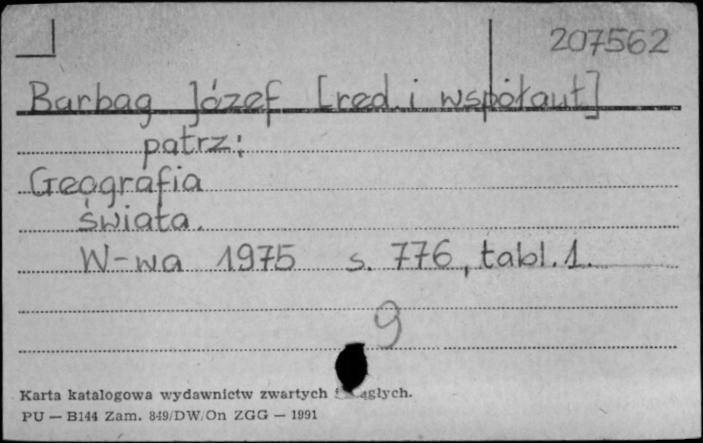 207562
Barbag Józef [red. i współaut]
patrz:
Geografia
świata.
W-wa 1975 s. 776, tabl. 1.
9
Karta katalogowa wydawnictw zwartych
PU — B144 Zam. 849/DW/On ZGG — 1991